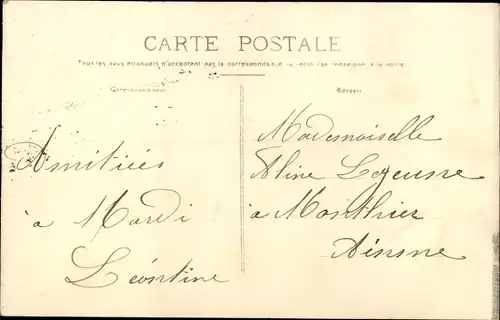 CARTE POSTALE
Tous les pays étrangers n'acceptent pas la correspondance au recto (se renseigner à la poste
Correspondance
Adresse
Amitiées
à Mardi
Léontine
Mademoiselle
Aline
à Monthier